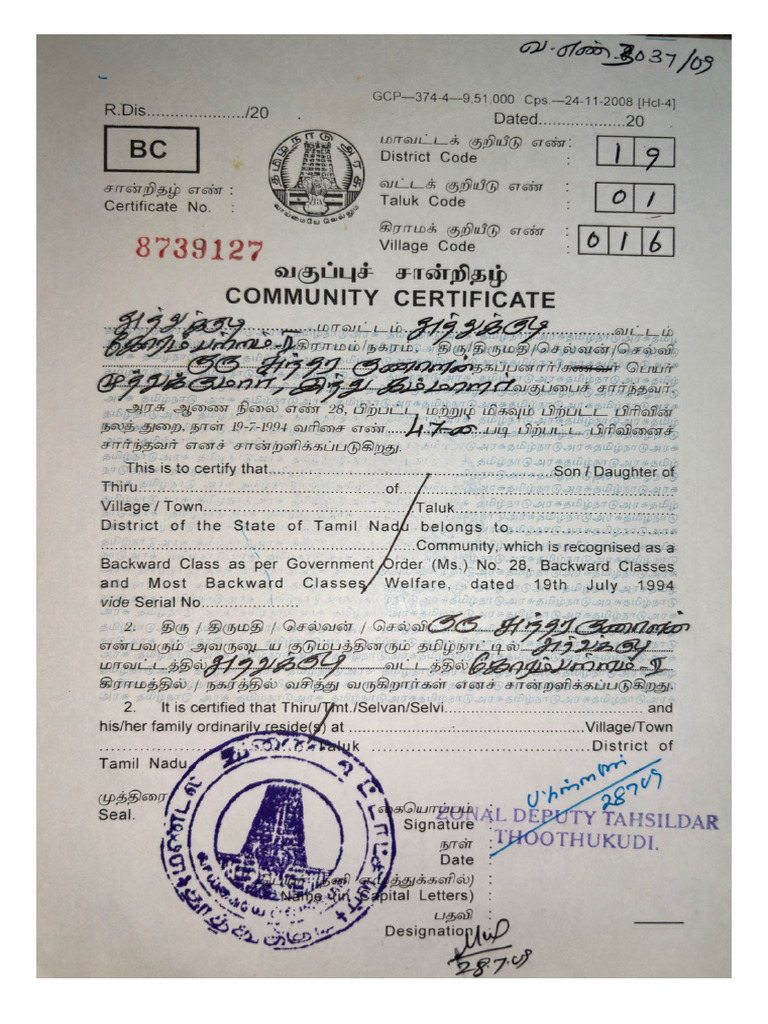 வ.எண் 3037/09
GCP—374-4—9,51,000 Cps.—24-11-2008 [Hcl-4]
R.Dis....................../20
Dated...................20
BC
தமிழ்நாடு அரசு
வாய்மையே வெல்லும்
மாவட்டக் குறியீடு எண் :
District Code : 19
சான்றிதழ் எண் :
Certificate No. :
வட்டக் குறியீடு எண் :
Taluk Code : 01
8739127
கிராமக் குறியீடு எண் :
Village Code : 016
வகுப்புச் சான்றிதழ்
COMMUNITY CERTIFICATE
தூத்துக்குடி மாவட்டம் தூத்துக்குடி வட்டம்
கோரம்பள்ளம்-II கிராமம்/நகரம், திரு/திருமதி/செல்வன்/செல்வி
குரு சுந்தர குணாளன் தகப்பனார்/கணவர் பெயர்
முத்துக்குமார், இந்து கம்மாளர் வகுப்பைச் சார்ந்தவர்.
அரசு ஆணை நிலை எண் 28, பிற்பட்ட மற்றும் மிகவும் பிற்பட்ட பிரிவின்
நலத் துறை, நாள் 19-7-1994 வரிசை எண் 47-ன் படி பிற்பட்ட பிரிவினைச்
சார்ந்தவர் எனச் சான்றளிக்கப்படுகிறது.
This is to certify that..............................Son / Daughter of
Thiru.......................................of.......................................
Village / Town..............................Taluk..............................
District of the State of Tamil Nadu belongs to..............................
..............................Community, which is recognised as a
Backward Class as per Government Order (Ms.) No. 28, Backward Classes
and Most Backward Classes Welfare, dated 19th July 1994
vide Serial No...................
2. திரு / திருமதி / செல்வன் / செல்வி குரு சுந்தர குணாளன்
என்பவரும் அவருடைய குடும்பத்தினரும் தமிழ்நாட்டில் தூத்துக்குடி
மாவட்டத்தில் தூத்துக்குடி வட்டத்தில் கோரம்பள்ளம்-II
கிராமத்தில் / நகரத்தில் வசித்து வருகிறார்கள் எனச் சான்றளிக்கப்படுகிறது.
2. It is certified that Thiru/Tmt./Selvan/Selvi..............................and
his/her family ordinarily reside(s) at..............................Village/Town
..............................Taluk..............................District of
Tamil Nadu.
முத்திரை
Seal.
கையொப்பம் :
Signature :
28.7.09
ZONAL DEPUTY TAHSILDAR
THOOTHUKUDI.
நாள் :
Date :
பெயர் (தனி எழுத்துக்களில்) :
Name (in Capital Letters) :
பதவி :
Designation
28.7.09